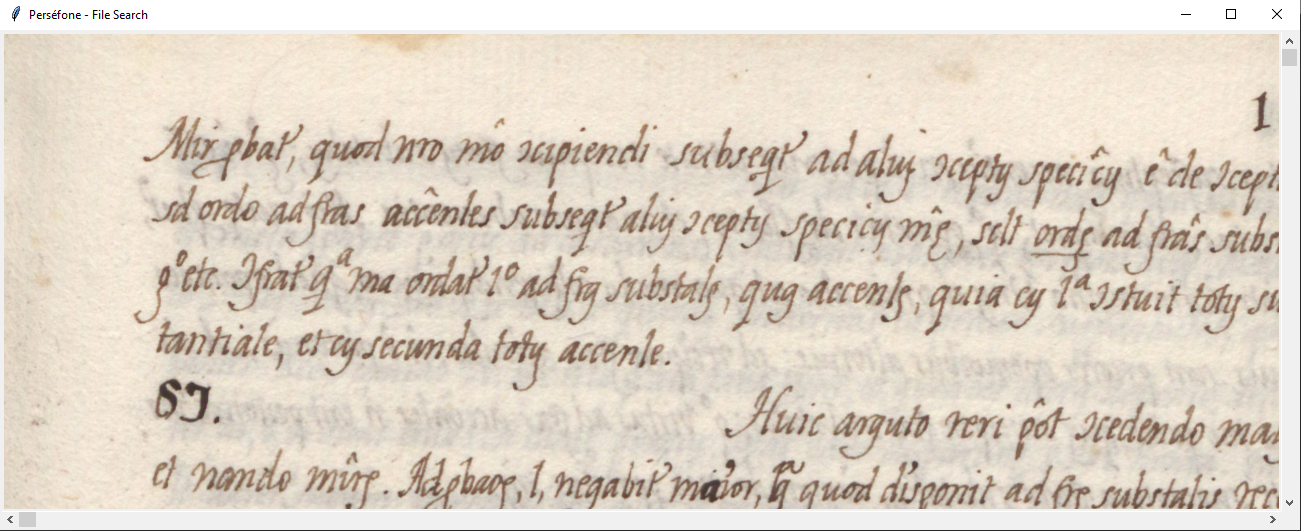 Perséfone - File Search
1
Mir pbat͛, quod nro mô ɔcipiendi subseqt͛ ad aluj ɔcepty specîcy ê de ɔcept
sd ordo ad fras accênles subseqt͛ aluj ɔcepty specicy, sclt ad frâs subs
etc. ma ordat͛ 1º ad substalę, quą accenlę, quia cy 1ª ɔstuit toty su
tantiale, et cy secunda toty accenle.
§I.
Huic arguto reri pôt ɔcedendo maj
et nando. l, negabit͛ maior, quod disponit ad substalis rece